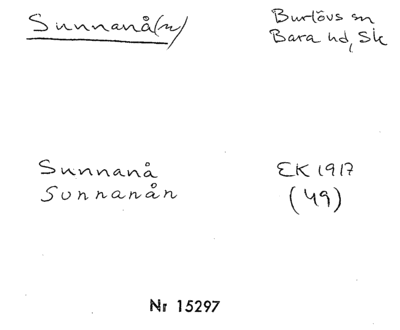 Sunnanå(n)
Burlövs sn
Bara hd, Sk
Sunnanå
Sunnanån
EK 1917
(49)
Nr 15297